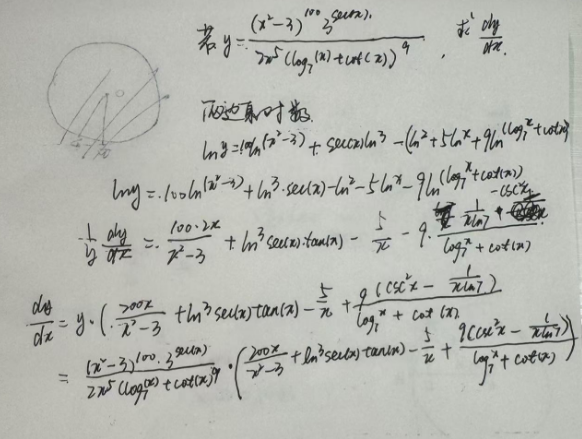 若 y = \frac{(x^2-3)^{100} 3^{sec(x)}}{2x^5 (log_7(x) + cot(x))^9} , 求 \frac{dy}{dx}.
两边取对数
ln y = 100 ln(x^2-3) + sec(x) ln3 - (ln2 + 5 ln x + 9 ln(log_7 x + cot(x)
ln y = 100 ln(x^2-3) + ln3 · sec(x) - ln2 - 5 ln x - 9 ln(log_7 x + cot(x))
\frac{1}{y} \frac{dy}{dx} = \frac{100 · 2x}{x^2-3} + ln3 sec(x) · tan(x) - \frac{5}{x} - 9 · \frac{\frac{1}{x ln7} - csc^2 x}{log_7 x + cot(x)}
\frac{dy}{dx} = y · ( \frac{200x}{x^2-3} + ln3 sec(x) tan(x) - \frac{5}{x} + \frac{9 (csc^2 x - \frac{1}{x ln7})}{log_7 x + cot(x)} )
= \frac{(x^2-3)^{100} · 3^{sec(x)}}{2x^5 (log_7(x) + cot(x))^9} · ( \frac{200x}{x^2-3} + ln3 sec(x) tan(x) - \frac{5}{x} + \frac{9 (csc^2 x - \frac{1}{x ln7})}{log_7 x + cot(x)} )